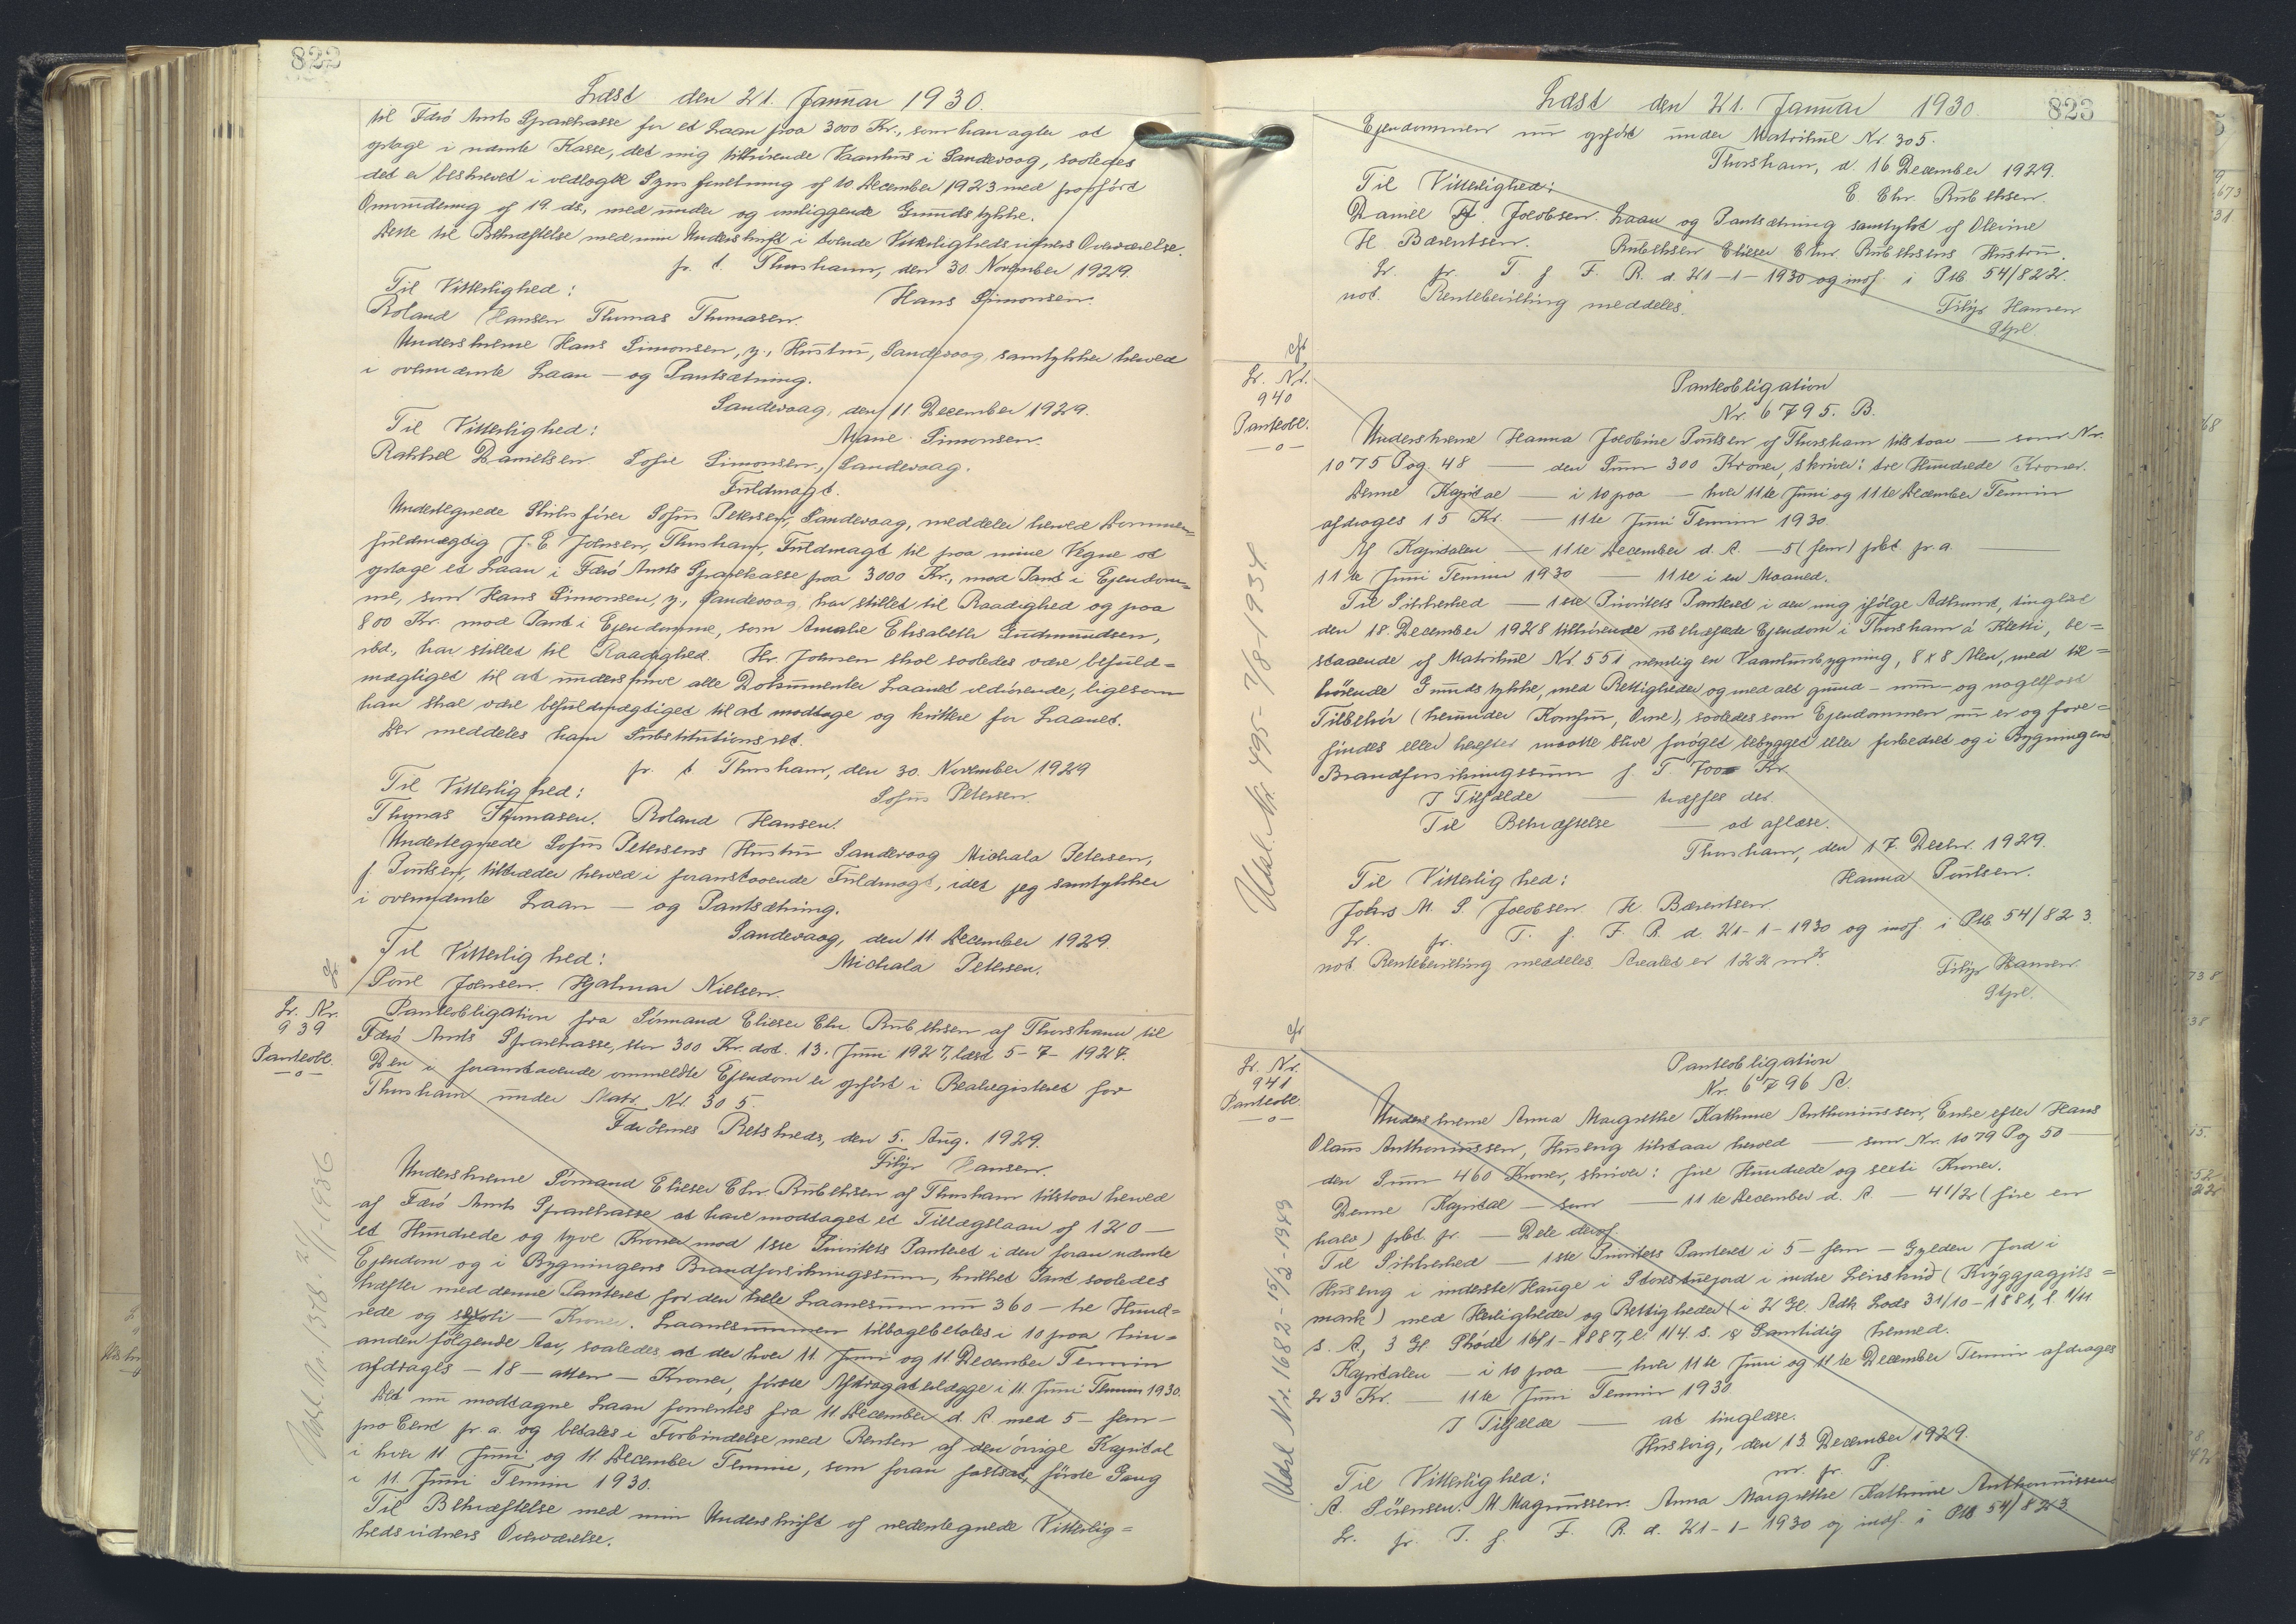 822
Læst den 21. Januar 1930.
til Færö Amts Sparekasse for et Laan paa 3000 Kr., som han agter at
optage i nævnte Kasse, det mig tilhörende Vaanhus i Sandevaag, saaledes
det er beskrevet i vedlagte Syns forretning af 10. December 1923 med paaført
Omvurdering af 19. ds., med under og omliggende Grundstykke.
Dette til Bekræftelse med min Underskrift i tvende Vitterlighedsvidners Overværelse.
p. t. Thorshavn, den 30. November 1929.
Til Vitterlighed:
Hans Simonsen.
Roland Hansen Thomas Thomasen.
Underskrevne Hans Simonsen, y., Hustru, Sandevaag, samtykker herved
i ovennævnte Laan - og Pantsætning.
Sandevaag, den 11. December 1929.
Til Vitterlighed:
Marie Simonsen.
Rakkel Danielsen. Sofie Simonsen, Sandevaag.
Fuldmagt.
Undertegnede Skibsfører Sofus Petersen, Sandevaag, meddeler herved Dommer=
fuldmægtig J. E. Joensen, Thorshavn, Fuldmagt til paa mine Vegne at
optage et Laan i Færö Amts Sparekasse paa 3000 Kr., mod Pant i Ejendom=
me, som Hans Simonsen, y., Sandevaag, har stillet til Raadighed og paa
800 Kr. mod Pant i Ejendomme, som Amalie Elisabeth Gudmundsen,
ibd., har stillet til Raadighed. Hr. Joensen skal saaledes være befuld=
mægtiget til at underskrive alle Dokumenter Laanet vedrörende, ligesom
han skal være befuldmægtiget til at modtage og kvittere for Laanet.
Der meddeles ham Substitutionsret.
p. t. Thorshavn, den 30. November 1929
Til Vitterlighed:
Sofus Petersen.
Thomas Thomasen. Roland Hansen.
Undertegnede Sofus Petersens Hustru Sandevaag Michala Petersen,
f. Poulsen, tiltræder herved i foranstaaende Fuldmagt, idet jeg samtykker
i ovennævnte Laan - og Pantsætning.
Sandevaag, den 11. December 1929.
Til Vitterlighed:
Michala Petersen.
Poul Joensen. Hjalmar Nielsen.
Lr. Nr.
939
Panteobl.
-o-
Panteobligation fra Sömand Elieser Chr. Rubeksen af Thorshavn til
Færö Amts Sparekasse, stor 300 Kr. dat. 13. Juni 1927, læst 5-7-1927.
Den i foranstaaende ommeldte Ejendom er opført i Realregistret for
Thorshavn under Matr. Nr. 305.
Færöernes Retskreds, den 5. Aug. 1929.
Filip Hansen.
Underskrevne Sömand Elieser Chr. Rubeksen af Thorshavn tilstaar herved
af Færö Amts Sparekasse at have modtaget et Tillægslaan af 120 -
et Hundrede og tyve Kroner mod 1ste Prioritets Panteret i den foran nævnte
Ejendom og i Bygningens Brandforsikringssum, hvilket Pant saaledes
hæfter med denne Panteret for den hele Laanesum nu 360 - tre Hund=
rede og seksti - Kroner. Laanesummen tilbagebetales i 10 paa hin=
anden fölgende Aar, saaledes at der hver 11. Juni og 11. December Termin
afdrages - 18 - atten - Kroner, förste Afdrag at erlægge i 11. Juni Termin 1930.
Det nu modtagne Laan forrentes fra 11. December d. A. med 5 - fem -
pro Cent p. a. og betales i Forbindelse med Renten af den övrige Kapital
i hver 11 Juni og 11. December Termin, som foran fastsat, förste Gang
i 11. Juni Termin 1930.
Til Bekræftelse med min Underskrift og nedentegnede Vitterlig=
hedsvidners Overværelse.
Udsl. Nr. 1378. 21/1-1936.
823
Læst den 21. Januar 1930.
Ejendommen nu opfört under Matrikul Nr. 305.
Thorshavn, d. 16 December 1929.
Til Vitterlighed:
E. Chr. Rubeksen.
Daniel Jacobsen. Laan og Pantsætning samtykt af Olevine
H. Bærentsen.
Rubeksen Elieser Chr. Rubeksens Hustru.
Lr. pr. T. f. F. R. d. 21-1-1930 og indf. i Ptb. 54/822.
not. Rentebevilling meddeles.
Filip Hansen
Gbfl.
Lr. Nr.
940
Panteobl.
-o-
Panteobligation
Nr. 6795. B.
Underskrevne Hanna Jacobine Poulsen af Thorshavn tilstaar - som Nr.
1075 Pag. 48 - den Sum 300 Kroner, skriver: tre Hundrede Kroner.
Denne Kapital - i 10 paa - hver 11te Juni og 11te December Termin
afdrages 15 Kr. - 11te Juni Termin 1930.
Af Kapitalen - 11te December d. A. - 5 (fem) pCt. p. a. -
11te Juni Termin 1930 - 11te i en Maaned.
Til Sikkerhed - 1ste Prioritets Panteret i den mig ifölge Adkomst, tinglæst
den 18. December 1928 tilhörende ubehæftede Ejendom i Thorshavn á Kletti, be=
staaende af Matrikul Nr. 551 nemlig en Vaanhusbygning, 8 x 8 Alen, med til=
hörende Grundstykke, med Rettigheder og med alt grund - mur - og nagelfast
Tilbehör (herunder Komfur, Ovne), saaledes som Ejendommen nu er og fore=
findes eller herefter maatte blive foröget bebygget eller forbedret og i Bygningens
Brandforsikringssum p. T. 7000 Kr.
I Tilfælde - træffes der.
Til Bekræftelse - at aflæse.
Thorshavn, den 17. Decbr. 1929.
Til Vitterlighed:
Hanna Poulsen.
Johs M. P. Jacobsen. H. Bærentsen.
Lr. pr. T. f. F. R. d. 21-1-1930 og indf. i Ptb. 54/823.
not. Rentebevilling meddeles. Arealet er 122 m².
Filip Hansen.
Gbfl.
Udsl. Nr. 495-7/8-1934
Lr. Nr.
941
Panteobl.
-o-
Panteobligation
Nr. 6796 A.
Underskrevne Anna Margrethe Kathrine Anthoniussen, Enke efter Hans
Olaus Anthoniussen, Húsavig tilstaar herved - som Nr. 1079 Pag 50 -
den Sum 460 Kroner, skriver: fire Hundrede og seksti Kroner.
Denne Kapital - som - 11te December d. A. - 4 1/2 (fire en
halv) pCt. p. - Dele deraf.
Til Sikkerhed - 1ste Prioritets Panteret i 5 - fem - Gylden Jord i
Husavig i inderste Hauge i Storestuejord i indre
mark) med Herligheder og Rettigheder (i 2 Gl. Adk. Lods 31/10-1881, l. 1/11
s. A, 3 Gl. Sköde 16/1-1887, l. 11/4. s. A. Samtidig hermed.
Kapitalen - i 10 paa - hver 11te Juni og 11te December Termin afdrages
23 Kr. - 11te Juni Termin 1930.
I Tilfælde - at tinglæse.
Húsavig, den 13. December 1929.
Til Vitterlighed:
m. f. P.
A. Sörensen. M. Magnussen. Anna Margrethe Kathrine Anthoniussen
Lr. pr. T. f. F. R. d. 21-1-1930 og indf. i Ptb 54/823
Udsl. Nr. 1682-15/3-1943